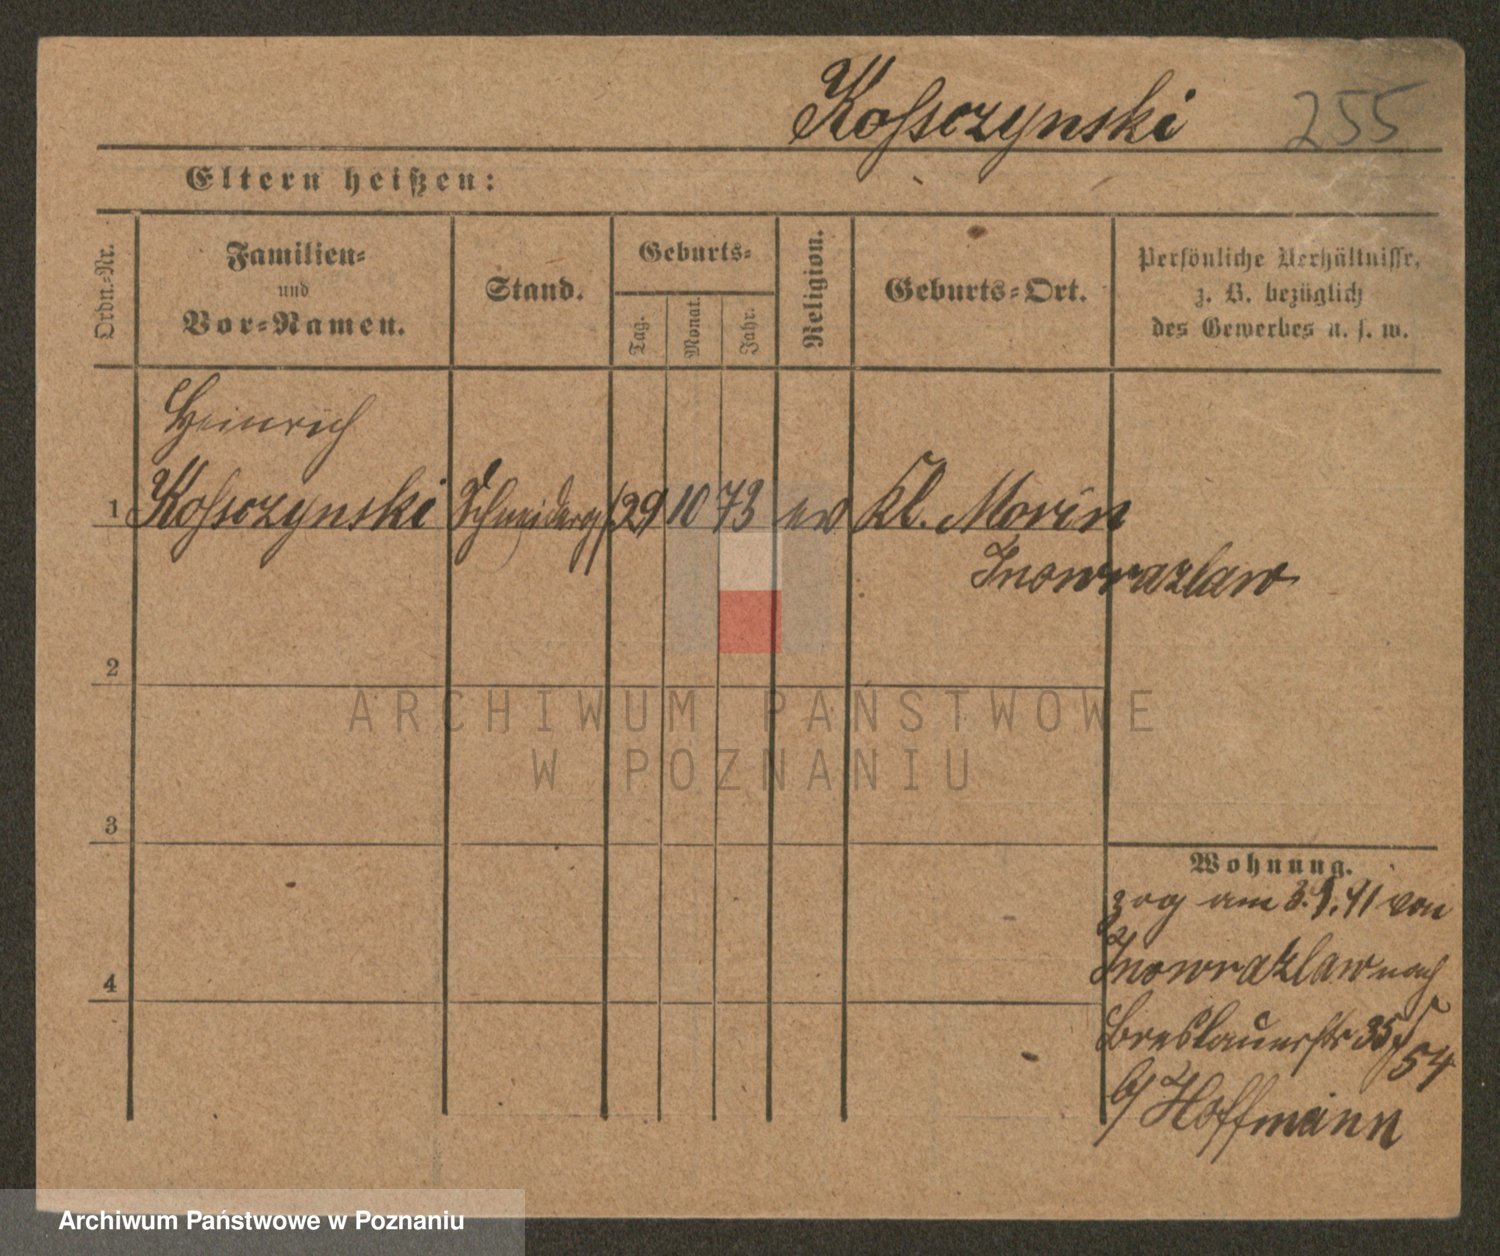 Kossczynski 255
Eltern heißen:
Ordn.-Nr.
Familien-
und
Vor-Namen.
Stand.
Geburts-
Tag.
Monat.
Jahr.
Religion.
Geburts-Ort.
Persönliche Verhältnisse,
z. B. bezüglich
des Gewerbes u. s. w.
Heinrich
1 Kossczynski Schneiderg 29 10 73 ev Kl. Morin
Inowrazlaw
2
ARCHIWUM PAŃSTWOWE
W POZNANIU
3
Wohnung.
zog am 3.9.91 von
Inowrazlaw nach
4
Breslauerstr 35
54
b/ Hoffmann
Archiwum Państwowe w Poznaniu